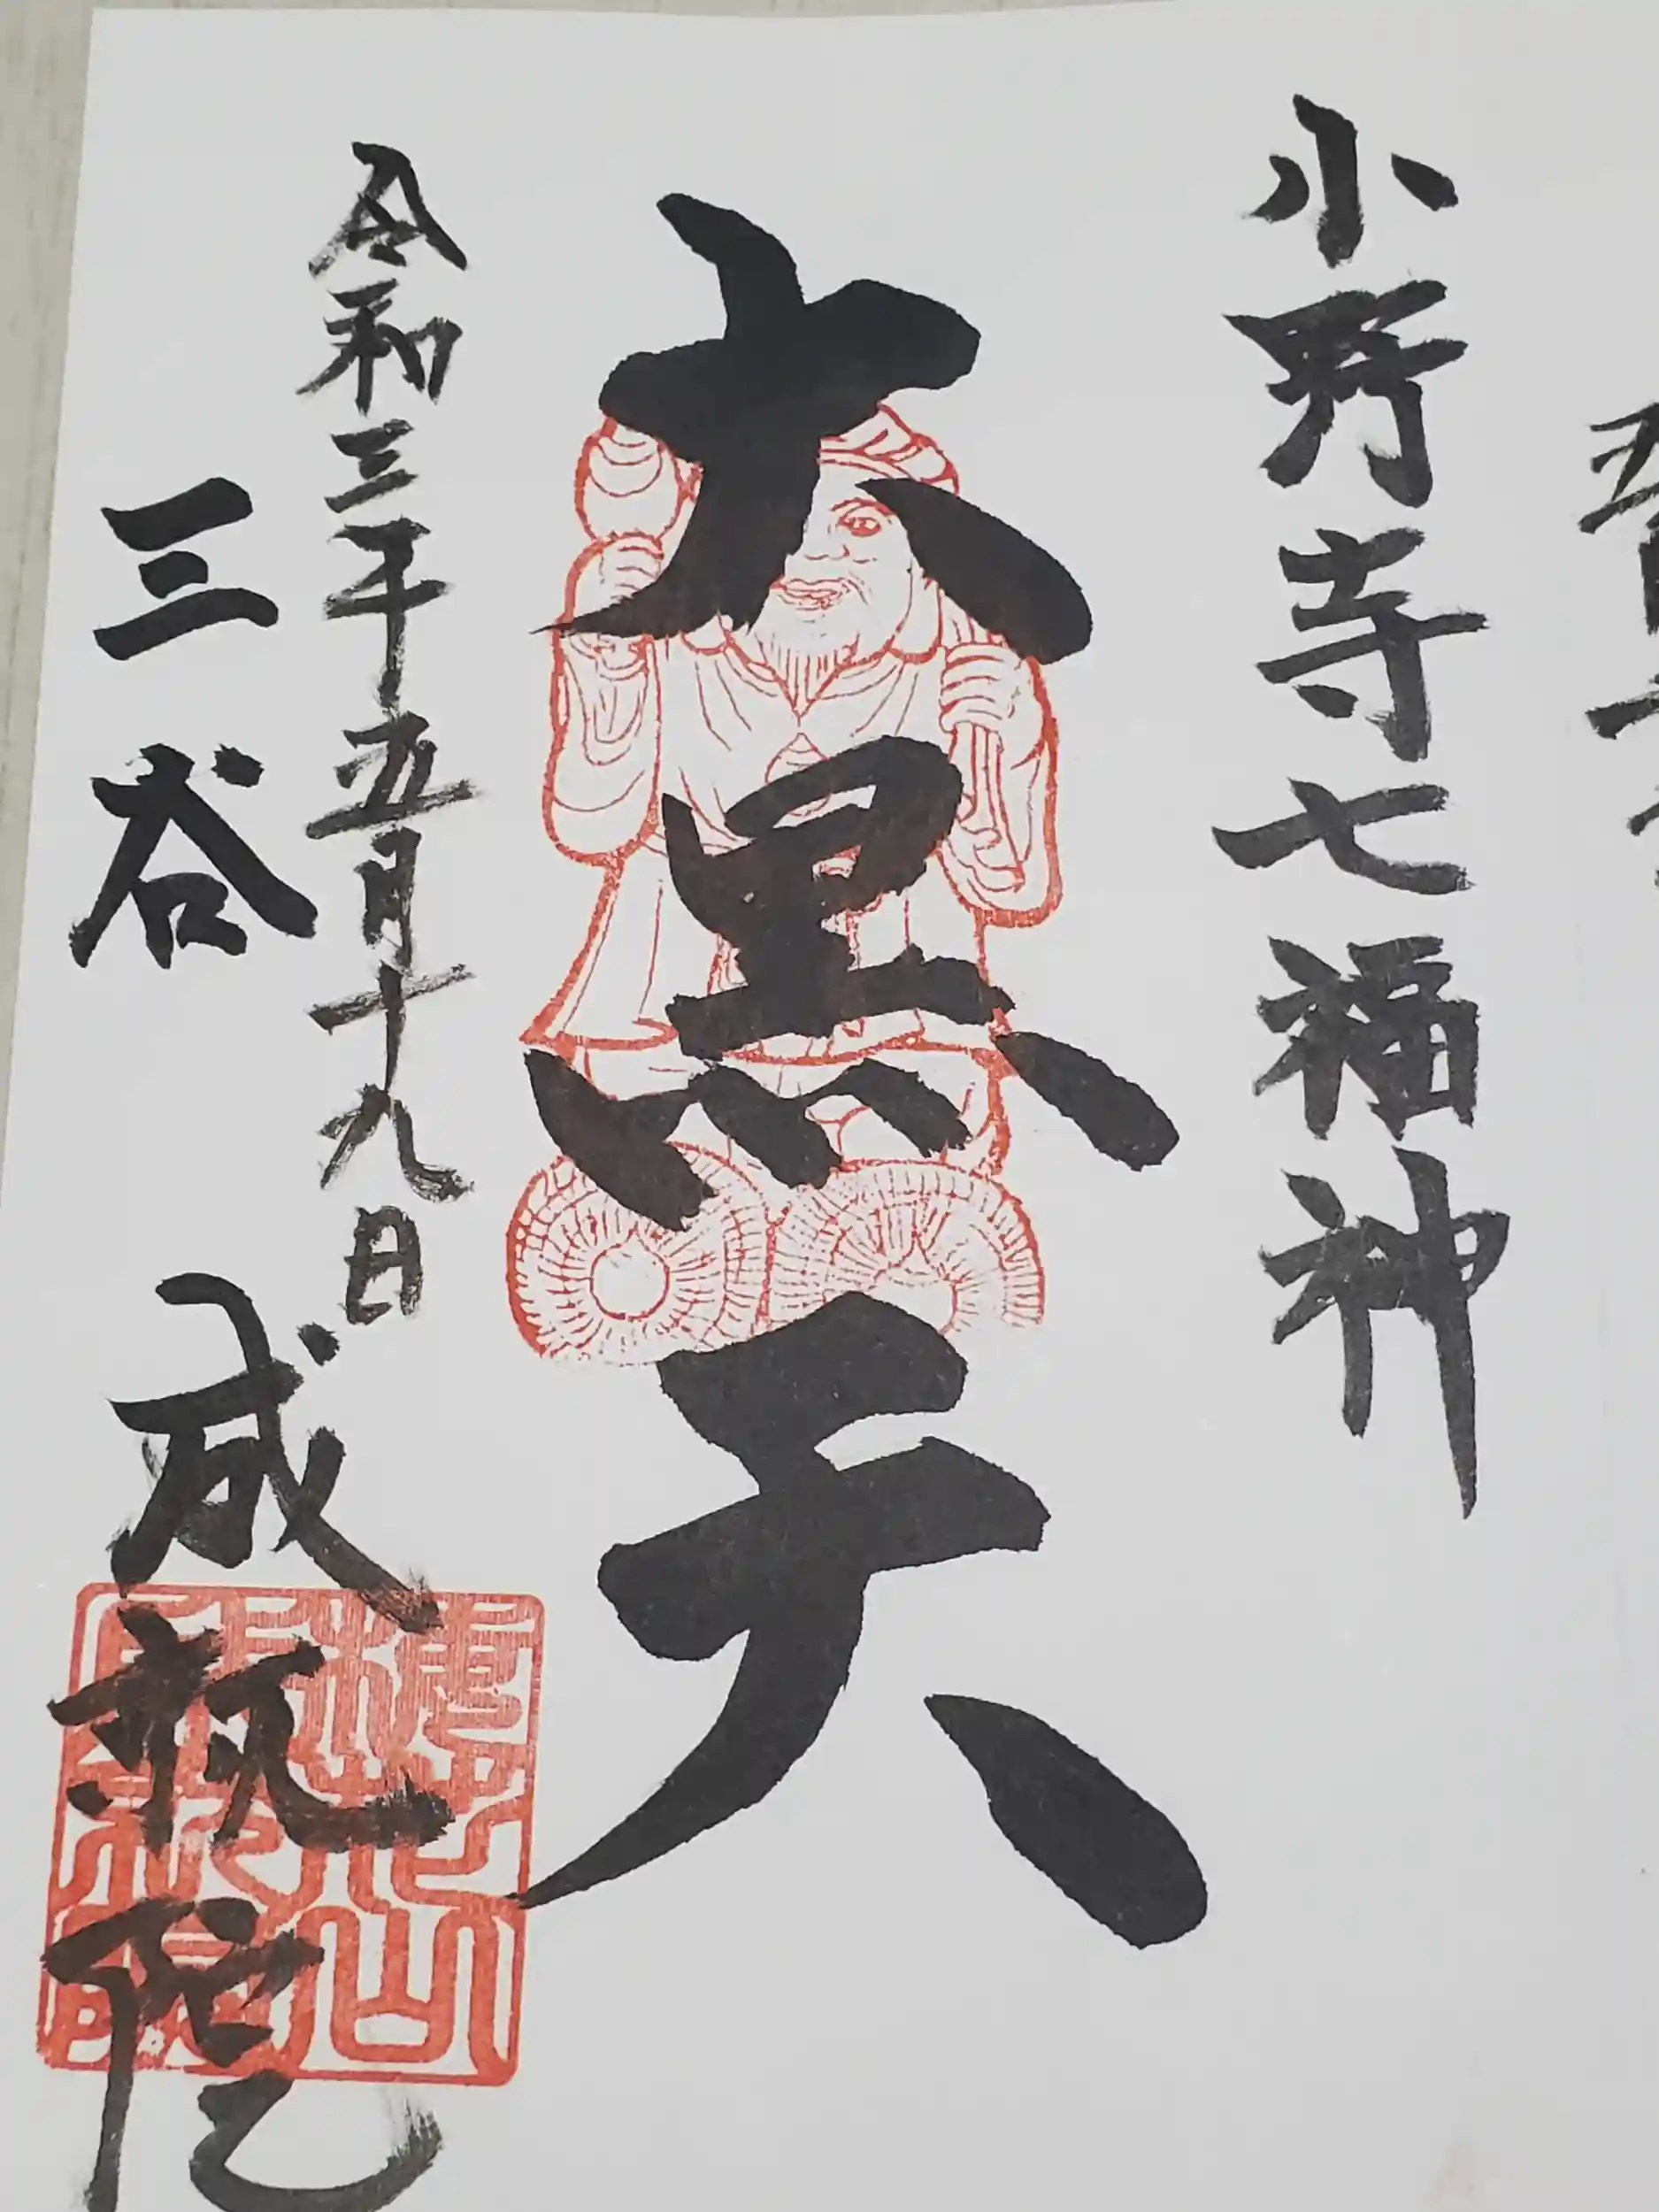 小野寺七福神
大黒天
令和三年五月十九日
三谷 成就院